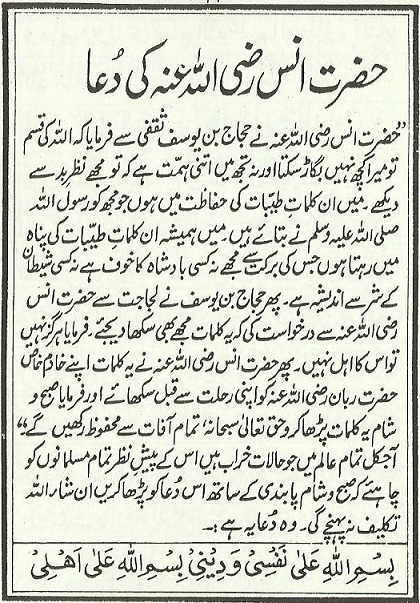 حضرت انس رضی اللہ عنہ کی دُعا
”حضرت انس رضی اللہ عنہ نے حجاج بن یوسف ثقفی سے فرمایا کہ اللہ کی قسم
تو میرا کچھ نہیں بگاڑ سکتا اور نہ تجھ میں اتنی ہمّت ہے کہ تو مجھے نظرِ بد سے
دیکھے۔ میں ان کلماتِ طیّبات کی حفاظت میں ہوں جو مجھ کو رسول اللہ
صلی اللہ علیہ وسلم نے بتائے ہیں۔ میں ہمیشہ ان کلماتِ طیبات کی پناہ
میں رہتا ہوں جس کی برکت سے مجھے نہ کسی بادشاہ کا خوف ہے نہ کسی شیطان
کے شر سے اندیشہ ہے۔ پھر حجاج بن یوسف نے لجاجت سے حضرت انس
رضی اللہ عنہ سے درخواست کی کہ یہ کلمات مجھے بھی سکھا دیجئے۔ فرمایا ہرگز نہیں
تو اس کا اہل نہیں۔ پھر حضرت انس رضی اللہ عنہ نے یہ کلمات اپنے خادم خاص
حضرت ربان رضی اللہ عنہ کو اپنی رحلت سے قبل سکھائے اور فرمایا صبح و
شام یہ کلمات پڑھا کرو حق تعالیٰ سبحانہٗ تمام آفات سے محفوظ رکھیں گے“
آجکل تمام عالم میں جو حالات خراب ہیں اس کے پیشِ نظر تمام مسلمانوں کو
چاہئے کہ صبح و شام پابندی کے ساتھ اس دُعا کو پڑھا کریں ان شاء اللہ
تکلیف نہ پہنچے گی۔ وہ دُعا یہ ہے :۔
بِسْمِ اللّٰهِ عَلٰى نَفْسِىْ وَدِيْنِىْ بِسْمِ اللّٰهِ عَلٰى اَهْلِىْ